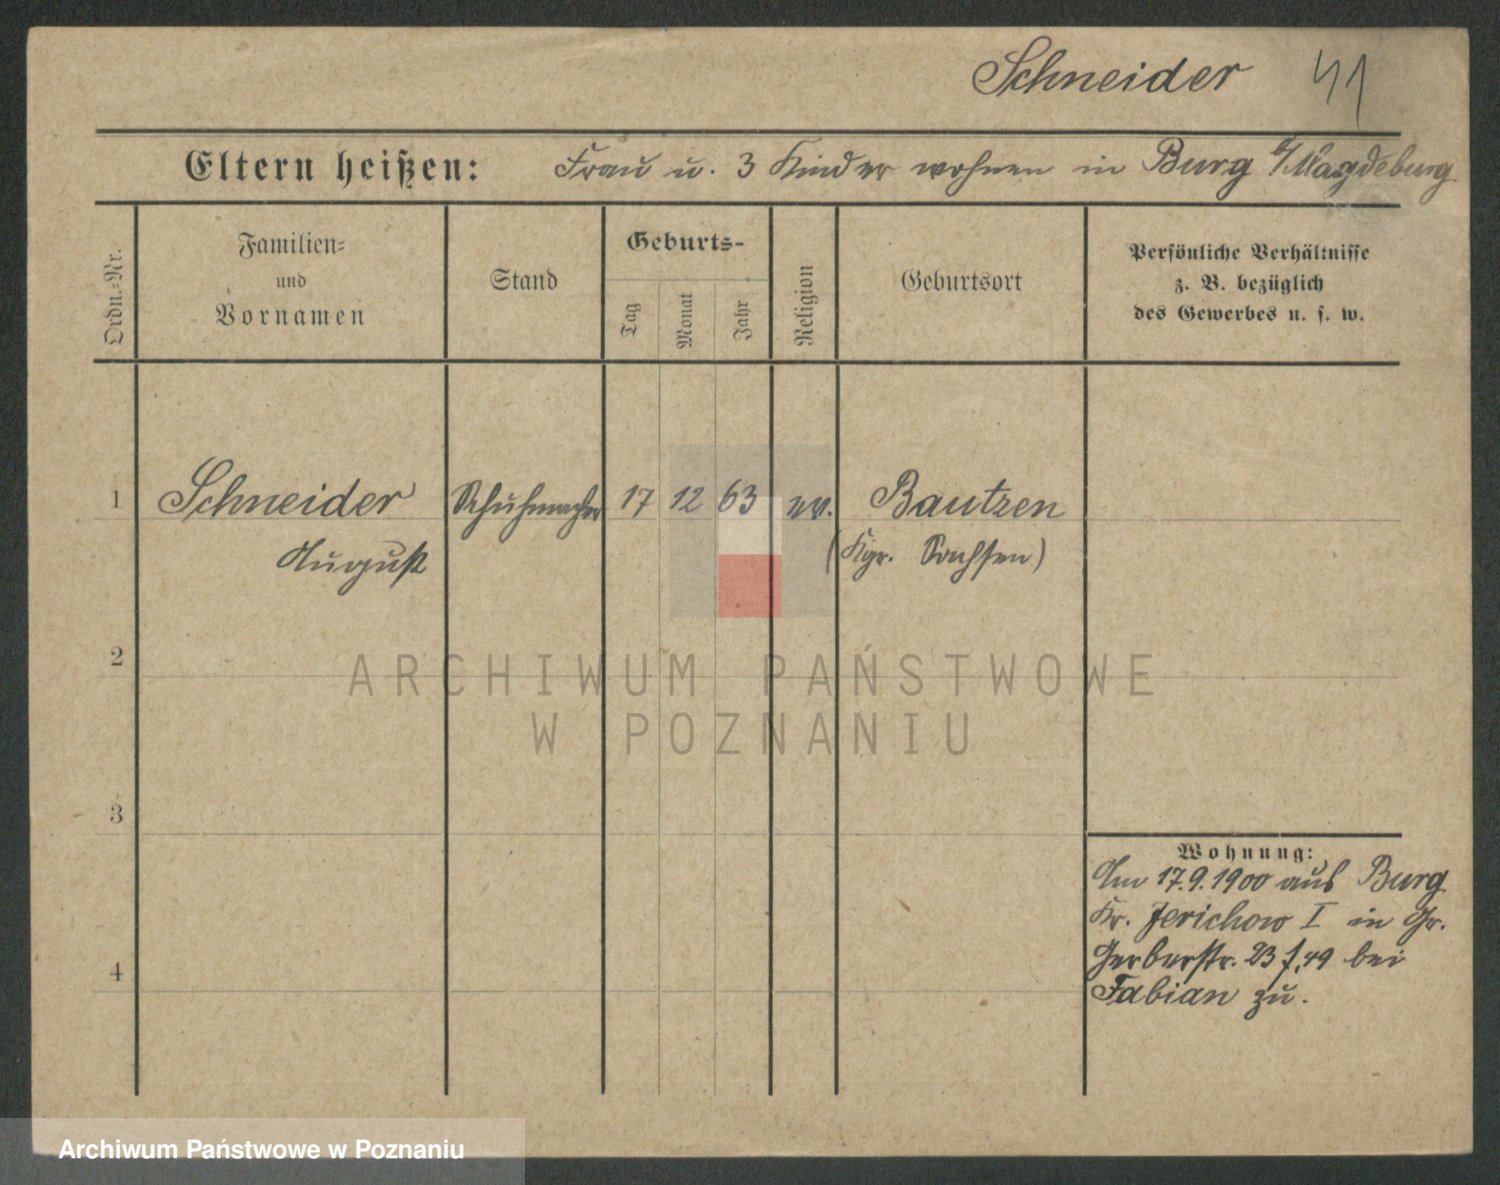 Schneider 41
Eltern heißen: Frau u. 3 Kinder wohnen in Burg b/Magdeburg
Ordn.-Nr.
Familien-
und
Vornamen
Stand
Geburts-
Tag
Monat
Jahr
Religion
Geburtsort
Persönliche Verhältnisse
z. B. bezüglich
des Gewerbes u. s. w.
1 Schneider Schuhmacher 17 12 63 ev. Bautzen
August (Kgr. Sachsen)
2
3
4
Wohnung:
Am 17.9.1900 aus Burg
Kr. Jerichow I in Gr.
Gerberstr. 23 49 bei
Fabian zu.
ARCHIWUM PAŃSTWOWE
W POZNANIU
Archiwum Państwowe w Poznaniu